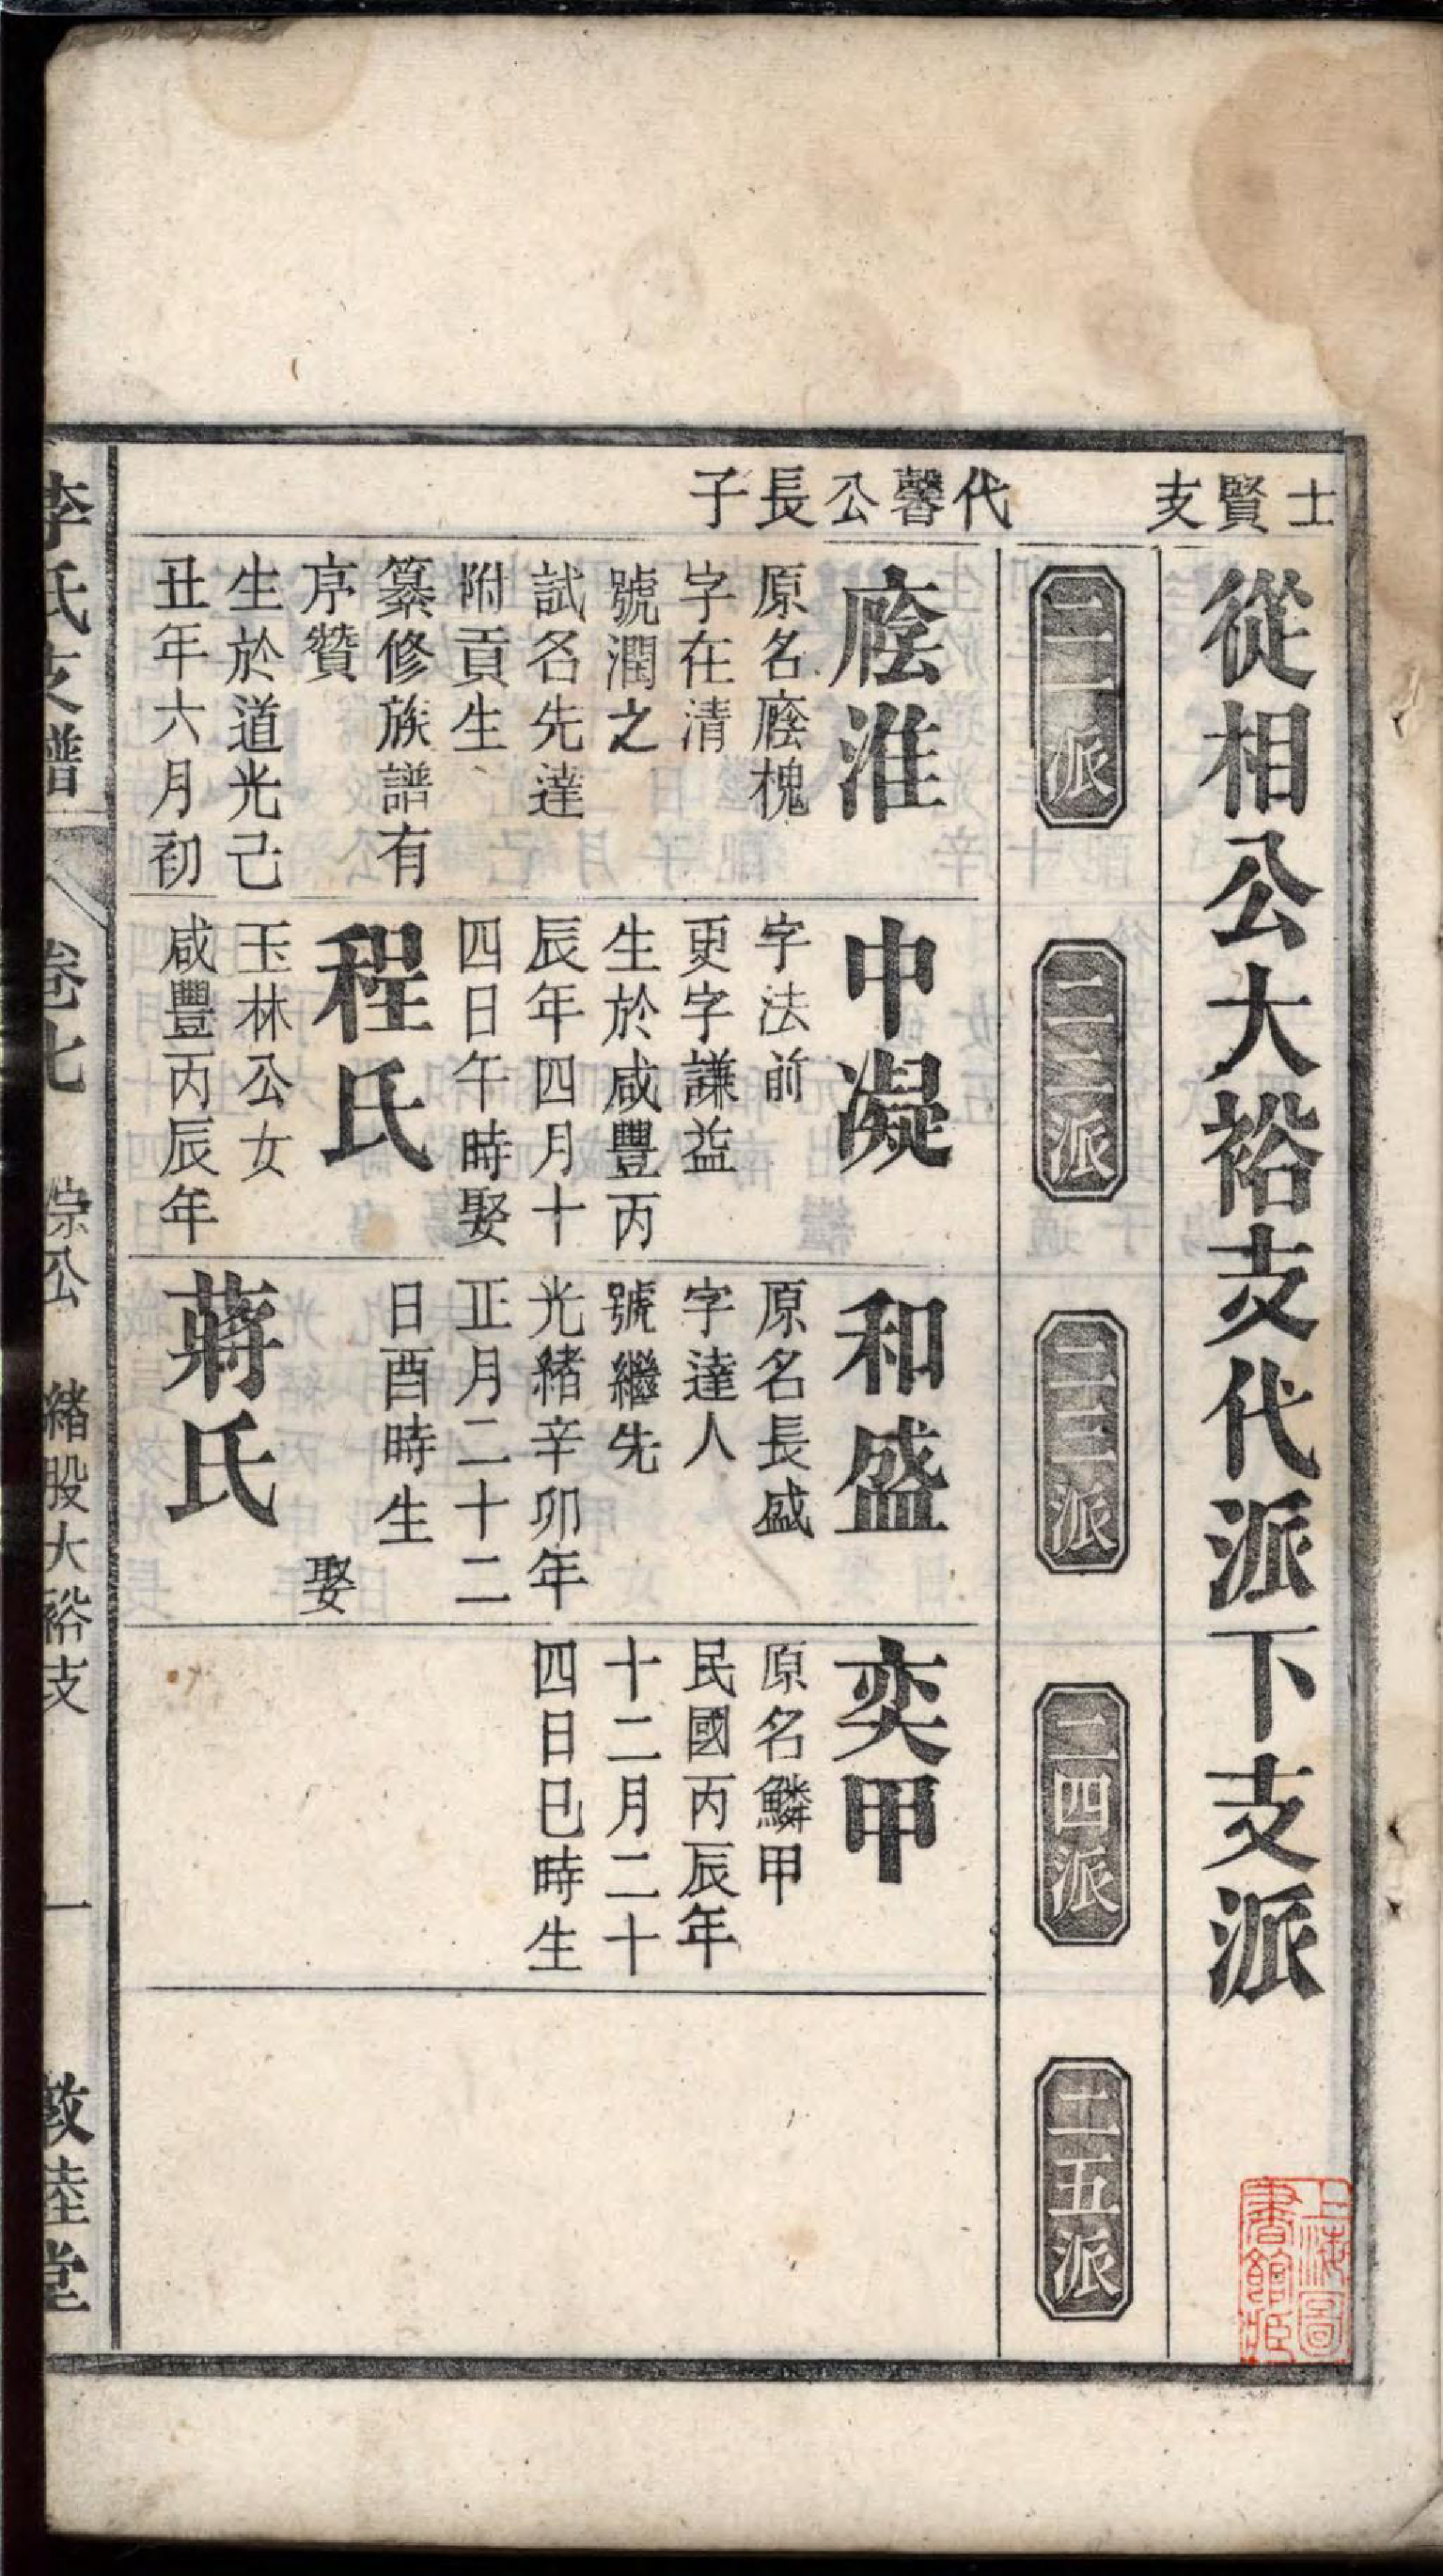 士賢支
從相公大裕支代派下支派
二一派
二二派
二三派
二四派
二五派
代馨公長子
蔭淮
原名蔭槐
字在清
號潤之
試名先達
附貢生
纂修族譜有
序贊
生於道光己
丑年六月初
中凝
字法前
更字謙益
生於咸豐丙
辰年四月十
四日午時娶
程氏
玉林公女
咸豐丙辰年
和盛
原名長盛
字達人
號繼先
光緒辛卯年
正月二十二
日酉時生
娶
蔣氏
奕甲
原名鱗甲
民國丙辰年
十二月二十
四日巳時生
李氏支譜
卷七
公
緒股大裕支
一
敦睦堂
上海圖書館藏